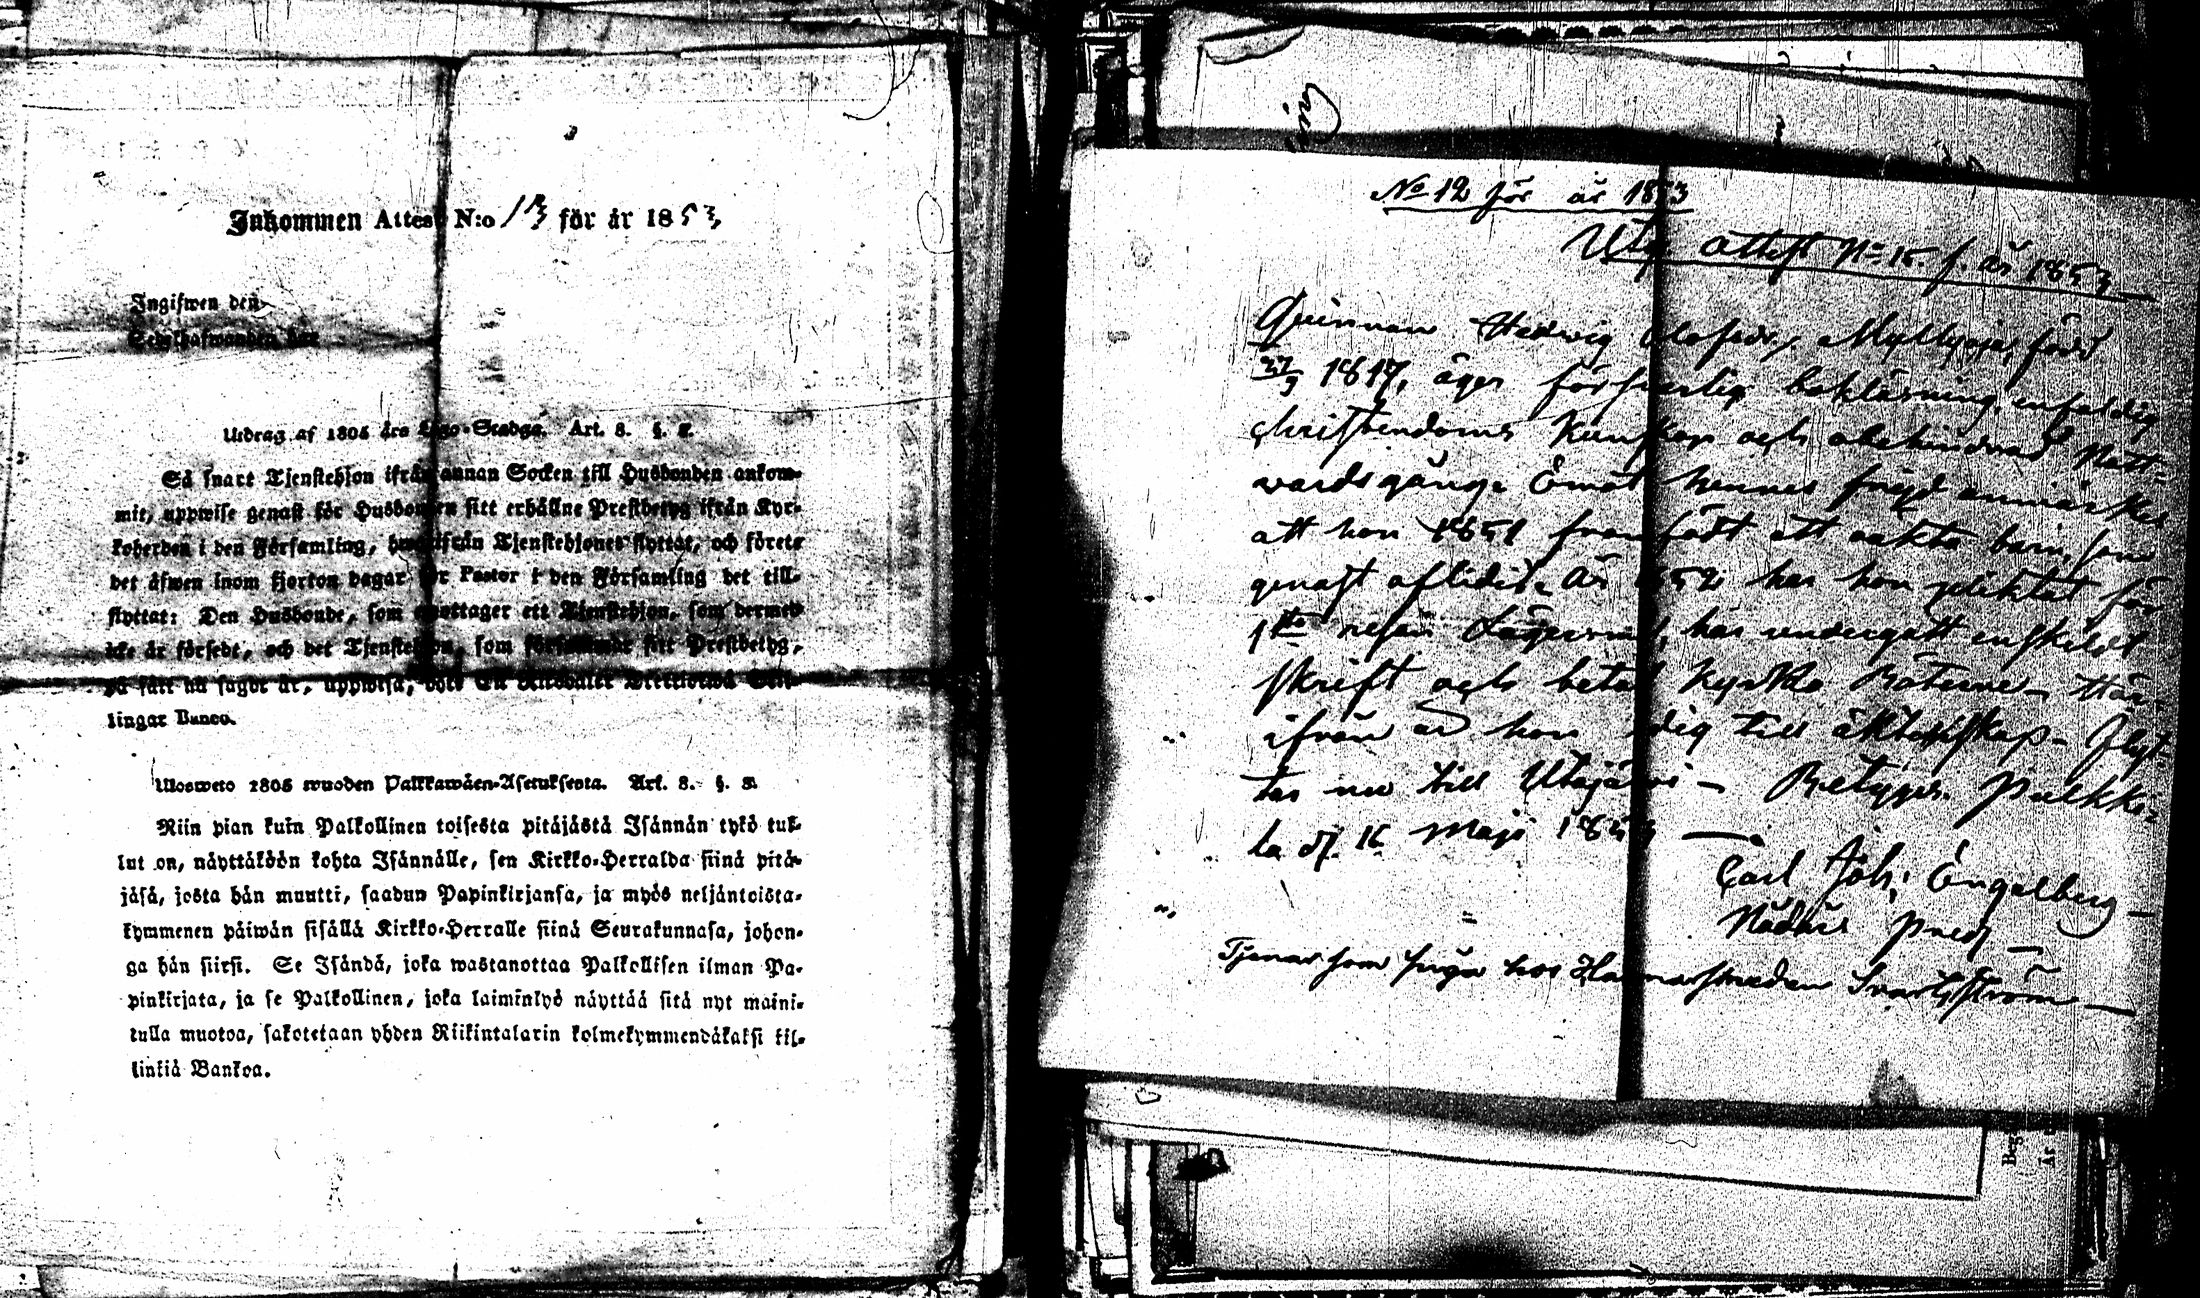 Inkommen Attest N:o 13 för år 1853
Ingifwen den
Utdrag af 1805 års Lego-Stadga. Art. 8. §. 8.
Så snart Tjenstehjon ifrån annan Socken till Husbonden ankom-
mit, uppwise genast för Husbonden sitt erhållne Prestbetyg ifrån Kyr-
koherden i den Församling, hwarifrån Tjenstehjonet flyttat, och förete
det äfwen inom fjorton dagar för Pastor i den Församling det till-
flyttat: Den Husbonde, som emottager ett Tjenstehjon, som dermed
icke är försedt, och det Tjenstehjon, som försummar sitt Prestbetyg,
på sätt nu sagdt är, uppwisa, böte En Riksdaler Trettiotwå Skil-
lingar Banco.
Ulosweto 1805 wuoden Palkkawäen-Asetuksesta. Art. 8. §. 8.
Niin pian kuin Palkollinen toisesta pitäjästä Isännän tykö tul-
lut on, näyttäköön kohta Isännälle, sen Kirkko-Herralda siinä pitä-
jäsä, josta hän muutti, saadun Papinkirjansa, ja myös neljäntoista-
kymmenen päiwän sisällä Kirkko-Herralle siinä Seurakunnasa, johon-
ga hän siirsi. Se Isändä, joka wastanottaa Palkollisen ilman Pa-
pinkirjata, ja se Palkollinen, joka laiminlyö näyttää sitä nyt maini-
tulla muotoa, sakotetaan yhden Riikintalarin kolmekymmendäkaksi kil-
linkiä Bankoa.
No 12 för år 1853
Utg attest No 15. f. år 1853
Quinnan Hedwig Olofsdr, Myllyoja, född
27/9 1817, äger försvarlig boklärning, enfaldig
christendoms kunskap och obehindrad Natt-
vardsgång. Emot hennes frejd anmärkes
att hon 1851 framfödt ett oäkta barn, som
genast aflidit. År 1852 har hon pliktat för
1sta resan Lägersmål, har undergått enskildt
skrift och betalt kyrko Böterne. Här-
ifrån är hon ledig till äktenskap. Flyt-
tar nu till Utajärvi - Betygar. Pulkki-
la d. 16 Maji 1853
Carl Joh: Engelberg
Nådårs Pred
Tjenar som piga hos Hammarsmeden Svartström